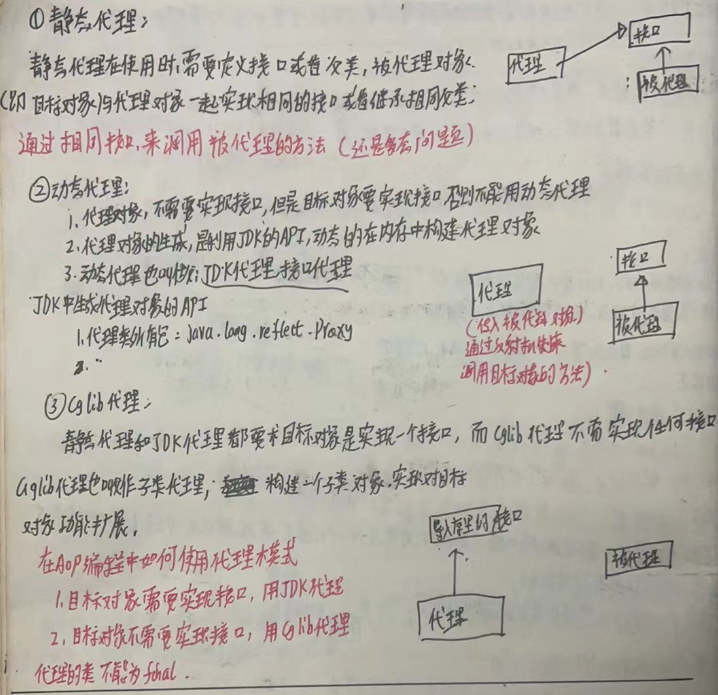 ①静态代理:
静态代理在使用时,需要定义接口或者父类,被代理对象
(即目标对象)与代理对象一起实现相同的接口或者继承相同父类;
通过相同接口,来调用被代理的方法(还是多态问题)
代理
接口
被代理
②动态代理:
1.代理对象,不需要实现接口,但是目标对象要实现接口否则不能用动态代理
2.代理对象的生成,是利用JDK的API,动态的在内存中构建代理对象
3.动态代理也叫做:JDK代理,接口代理
JDK中生成代理对象的API
1.代理类所在包:java.lang.reflect.Proxy
2.
代理
(传入被代理对象)
通过反射机制来
调用目标对象的方法)
接口
被代理
③Cglib代理:
静态代理和JDK代理都要求目标对象是实现一个接口,而Cglib代理不需实现任何接口
Cglib代理也叫作子类代理; 构建一个子类对象,实现对目标
对象功能扩展。
在AOP编程中如何使用代理模式
1.目标对象需要实现接口,用JDK代理
2.目标对象不需要实现接口,用Cglib代理
代理的类不能为final.
导入库里的接口
代理
被代理